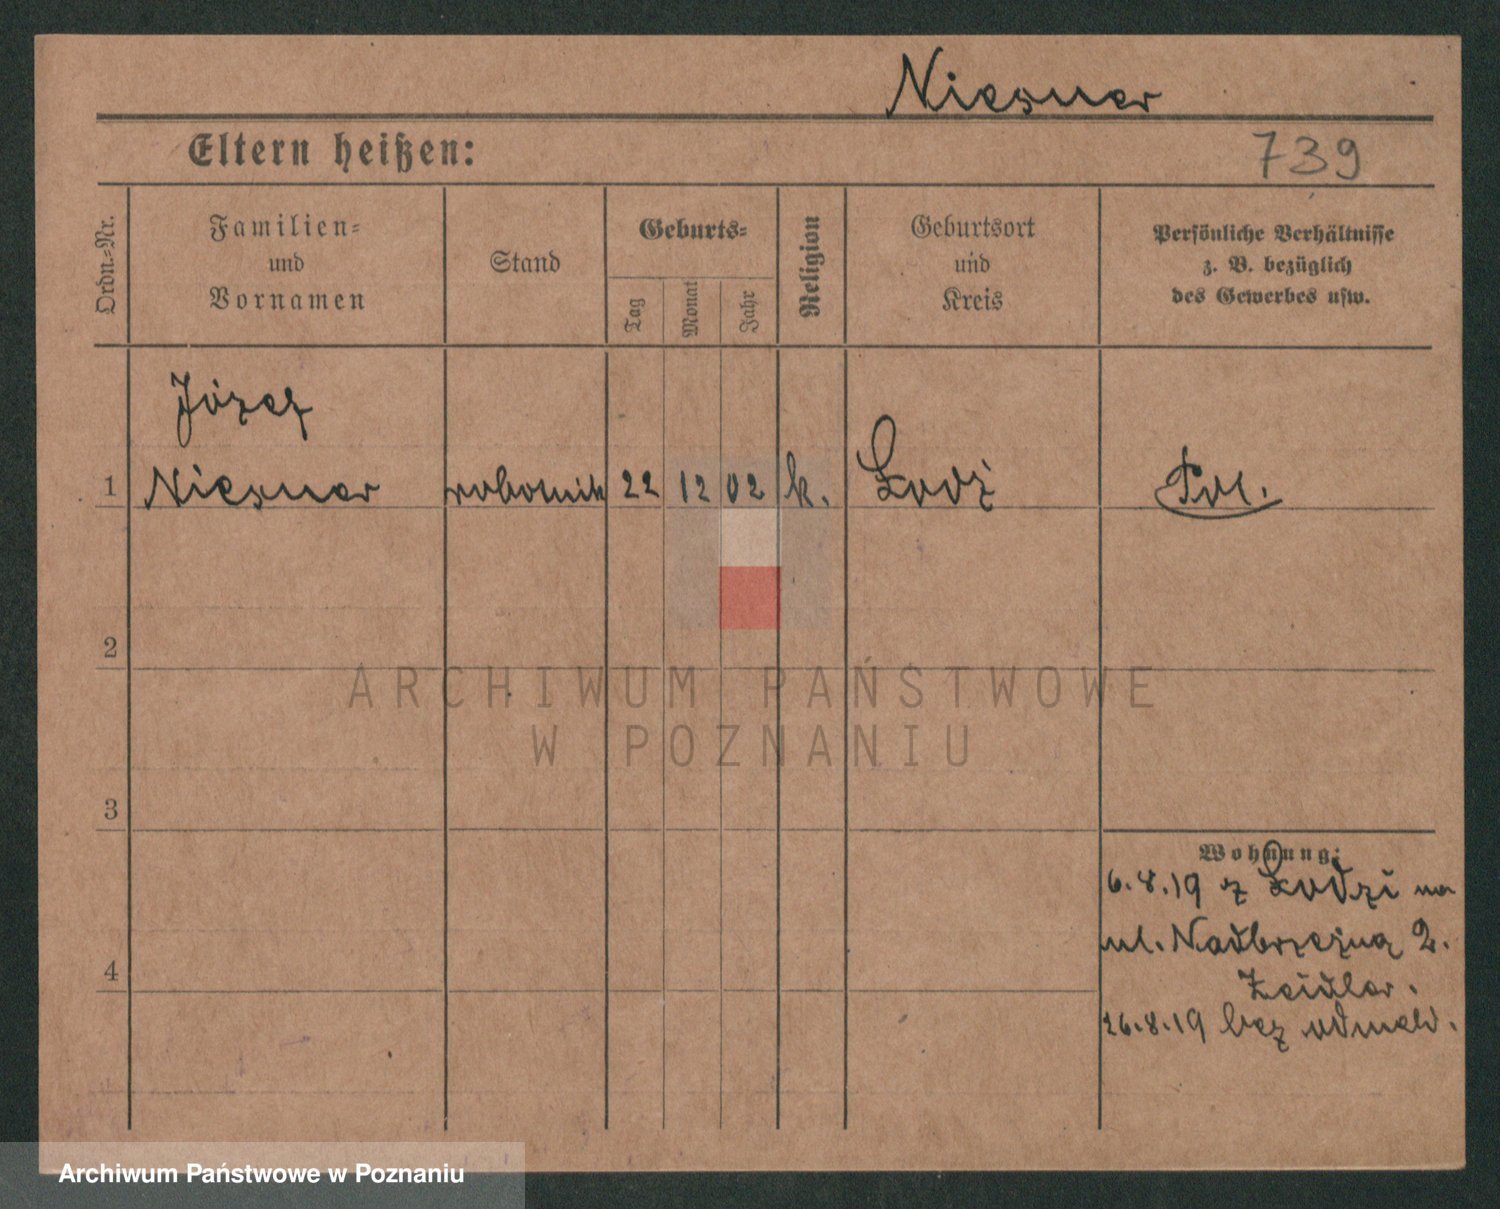 Niesner
Eltern heißen:
739
Ordn.-Nr.
Familien-
und
Vornamen
Stand
Geburts-
Tag
Monat
Jahr
Religion
Geburtsort
und
Kreis
Persönliche Verhältnisse
z. B. bezüglich
des Gewerbes usw.
Józef
1 Niesner robotnik 22 12 02 k. Łodź Pol.
2
ARCHIWUM PAŃSTWOWE
W POZNANIU
3
Wohnung:
6.8.19 z Łodzi na
ul. Nadbrzeżną 2.
4
Zeidler.
26.8.19 bez odmeld.
Archiwum Państwowe w Poznaniu